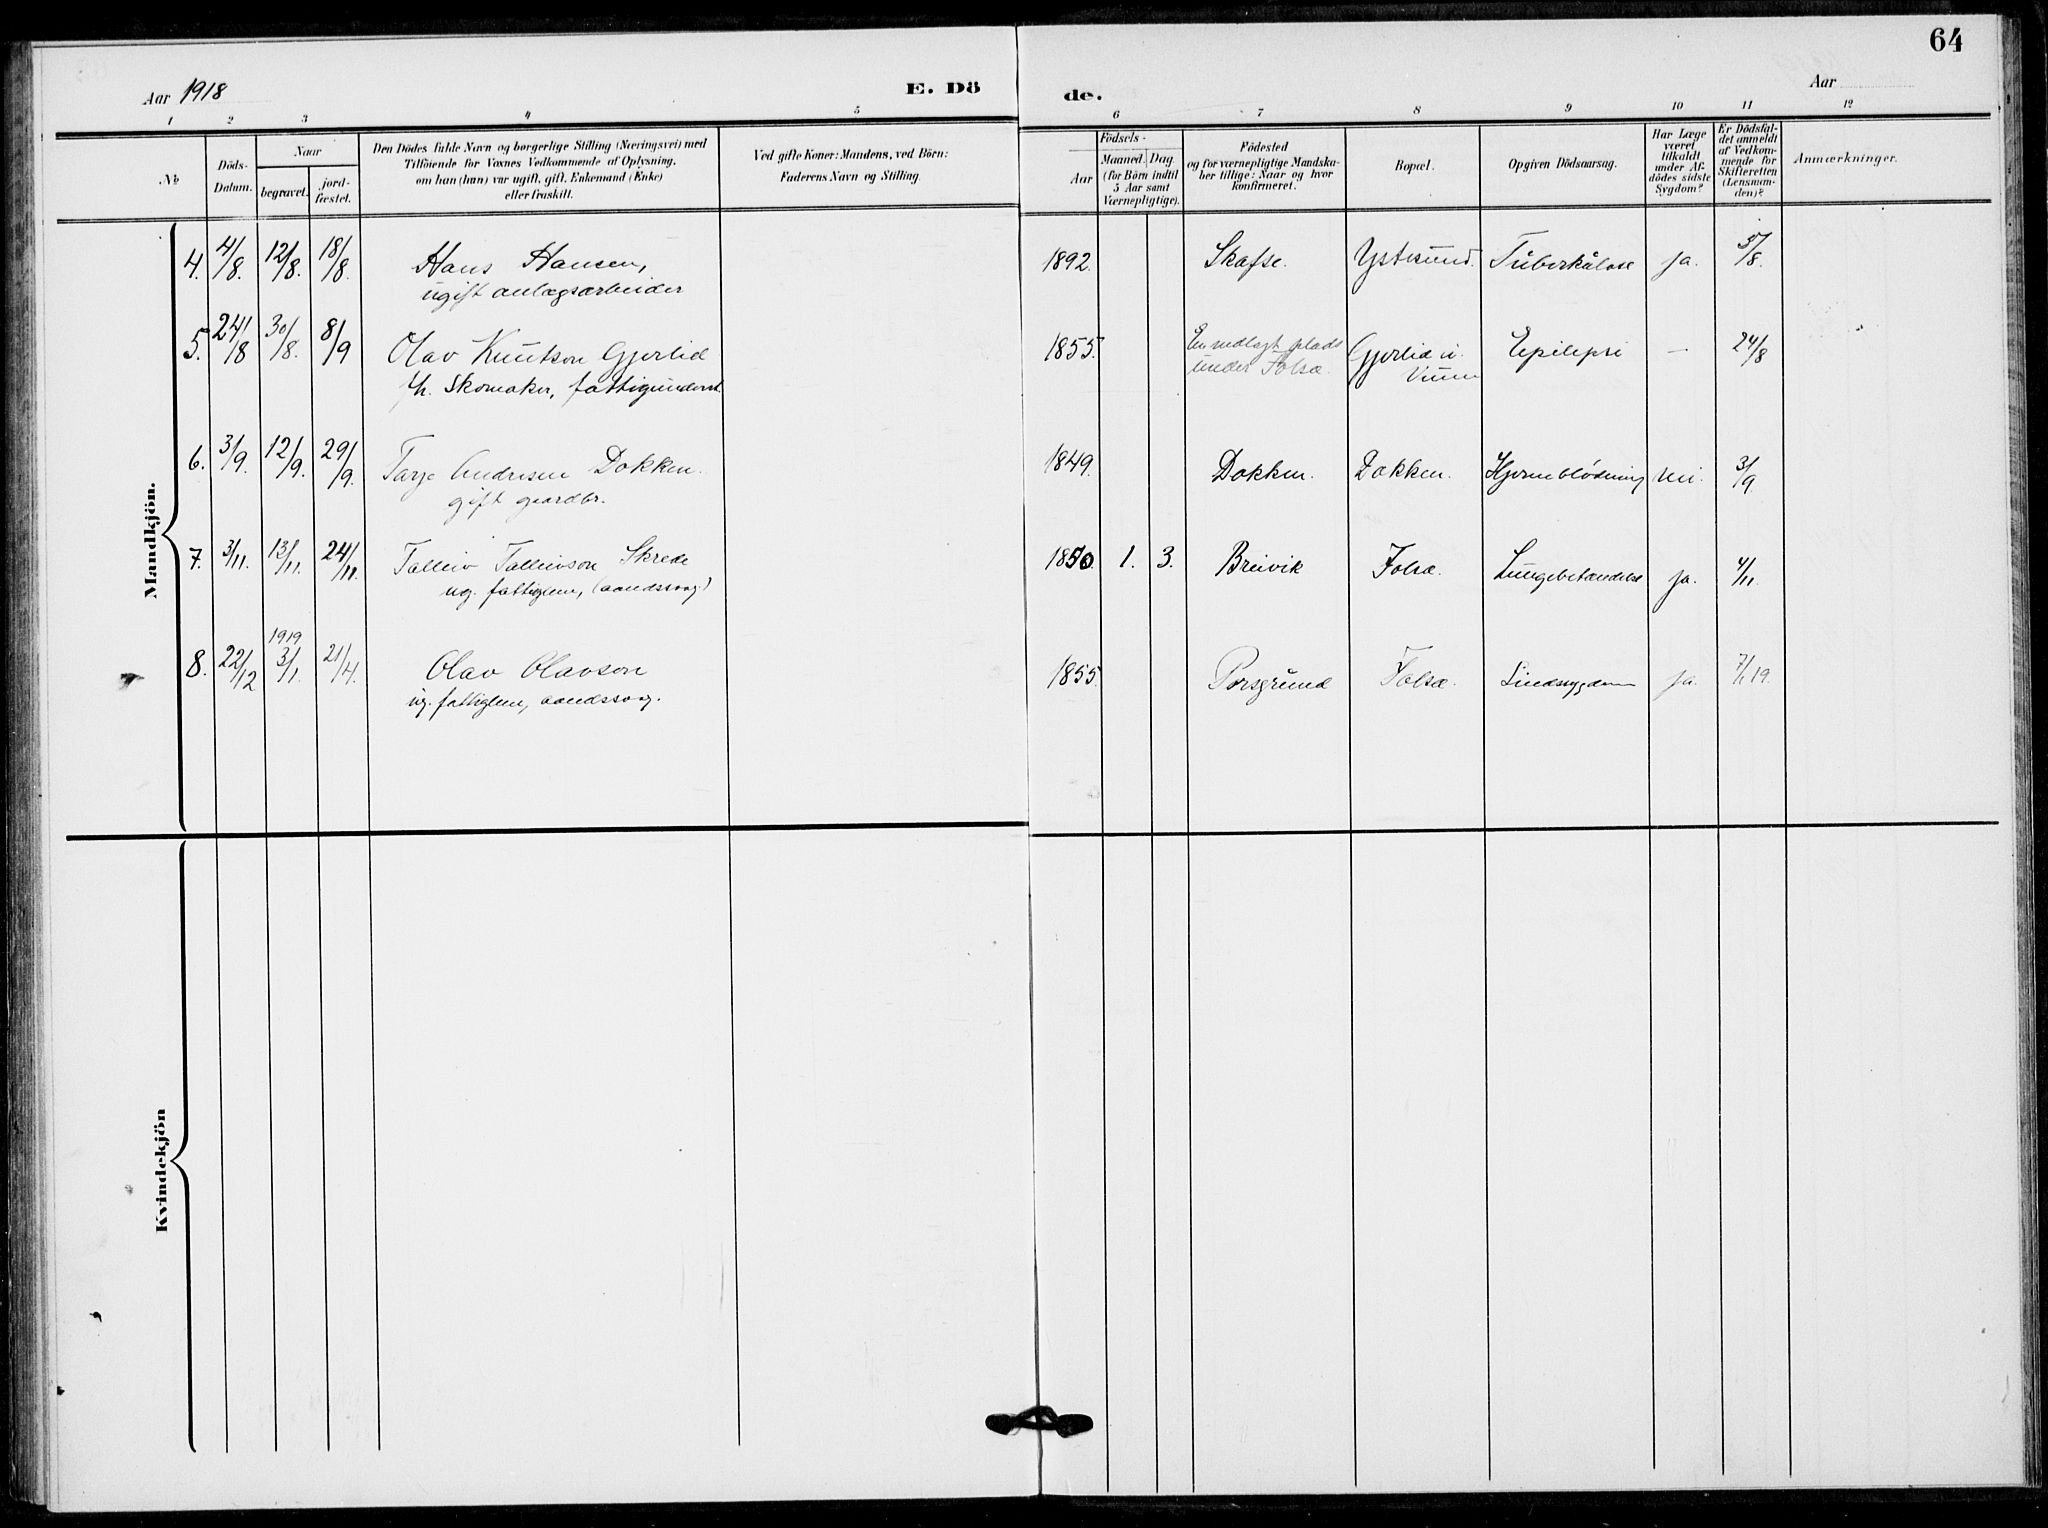 64
Aar 1918
E. Dö
de.
Aar
1 2 3 4 5 6 7 8 9 10 11 12
No
Döds-
Datum.
Naar
begravet.
jord-
fæstet.
Den Dödes fulde Navn og borgerlige Stilling (Næringsvei) med
Tilföiende for Voxnes Vedkommende af Oplysning,
om han (hun) var ugift, gift, Enkemand (Enke)
eller fraskilt.
Ved gifte Koner: Mandens, ved Börn:
Faderens Navn og Stilling.
Födsels-
Aar
Maaned.
Dag
(for Börn indtil
5 Aar samt
Værnepligtige).
Födested
og for værnepligtige Mandska-
ber tillige: Naar og hvor
konfirmeret.
Bopæl.
Opgiven Dödsaarsag.
Har Læge
været
tilkaldt
under Af-
dödes sidste
Sygdom?
Er Dödsfal-
det anmeldt
af Vedkom-
mende for
Skifteretten
(Lensman-
den)?
Anmærkninger.
Mandkjön.
4. 4/8. 12/8. 18/8. Hans Hansen, 1892. Skafse. Ystesund. Tuberkulose ja. 5/8.
ugift anlægsarbeider
5. 24/8 30/8. 8/9 Olav Knutson Gjerlid 1855. En nedlagt plads Gjerlid u. Epilepsi — 24/8
fh. Skomaker, fattigunderst. under Folsæ.
6. 3/9. 12/9. 29/9. Tarje Andresen Dokken. 1849. Dokken. Dokken. Hjerneblödning nei. 3/9
gift gaardbr.
7. 3/11. 13/11. 24/11. Talleiv Talleivson Skrede 1850. 1. 3. Breivik Folsæ. Lungebetændelse ja. 4/11.
ug. fattiglem, (aandssvag)
1919
8. 22/12 3/1. 21/4. Olav Olavson 1855. Porsgrund Folsæ. Sindssygdom ja. 7/1 19.
ug. fattiglem, aandssvag.
Kvindekjön